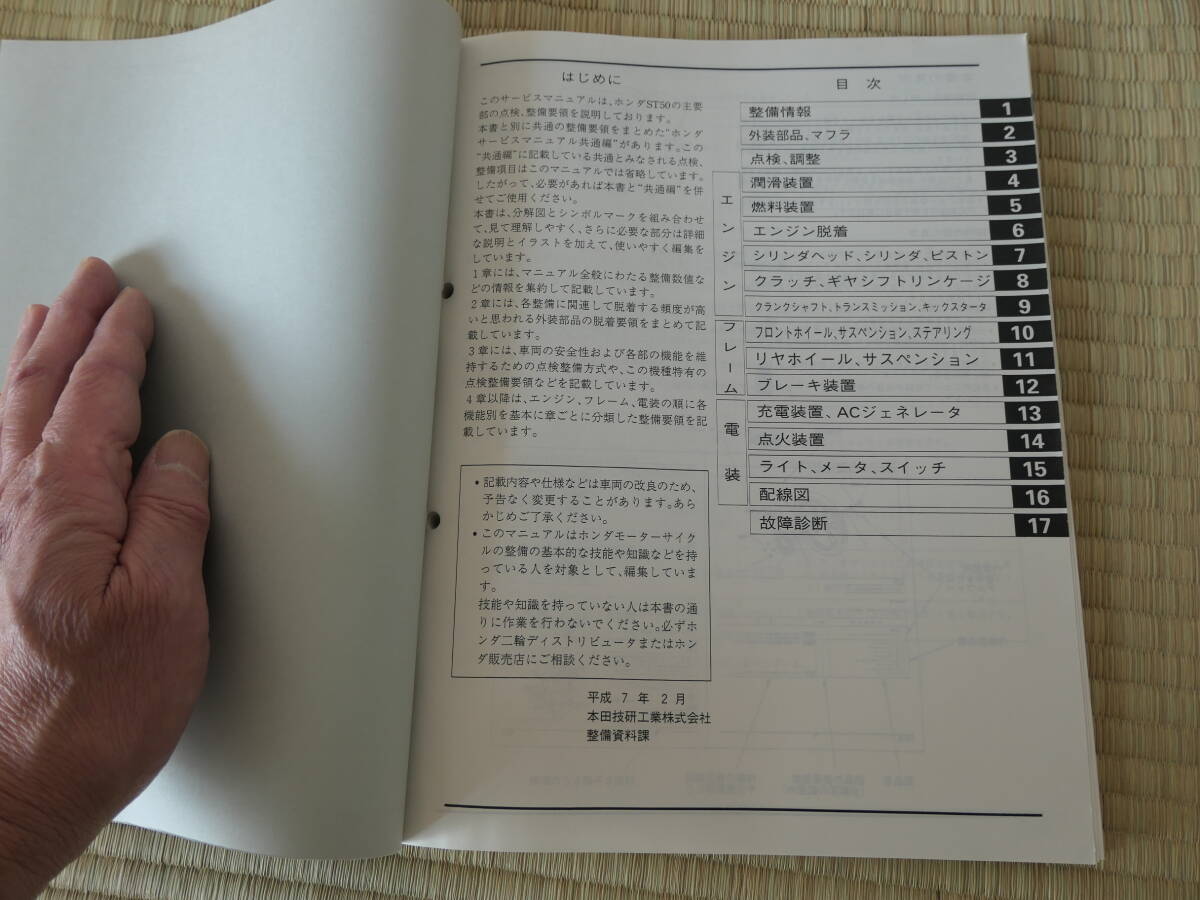 はじめに
このサービスマニュアルは、ホンダST50の主要
部の点検、整備要領を説明しております。
本書と別に共通の整備要領をまとめた“ホンダ
サービスマニュアル共通編”があります。この
“共通編”に記載している共通とみなされる点検、
整備項目はこのマニュアルでは省略しています。
したがって、必要があれば本書と“共通編”を併
せてご使用ください。
本書は、分解図とシンボルマークを組み合わせ
て、見て理解しやすく、さらに必要な部分は詳細
な説明とイラストを加えて、使いやすく編集を
しています。
1章には、マニュアル全般にわたる整備数値な
どの情報を集約して記載しています。
2章には、各整備に関連して脱着する頻度が高
いと思われる外装部品の脱着要領をまとめて記
載しています。
3章には、車両の安全性および各部の機能を維
持するための点検整備方式や、この機種特有の
点検整備要領などを記載しています。
4章以降は、エンジン、フレーム、電装の順に各
機能別を基本に章ごとに分類した整備要領を記
載しています。
•記載内容や仕様などは車両の改良のため、
予告なく変更することがあります。あら
かじめご了承ください。
•このマニュアルはホンダモーターサイク
ルの整備の基本的な技能や知識などを持
っている人を対象として、編集していま
す。
技能や知識を持っていない人は本書の通
りに作業を行わないでください。必ずホ
ンダ二輪ディストリビュータまたはホン
ダ販売店にご相談ください。
平成 7 年 2 月
本田技研工業株式会社
整備資料課
目 次
整備情報 1
外装部品、マフラ 2
点検、調整 3
エンジン
潤滑装置 4
燃料装置 5
エンジン脱着 6
シリンダヘッド、シリンダ、ピストン 7
クラッチ、ギヤシフトリンケージ 8
クランクシャフト、トランスミッション、キックスタータ 9
フレーム
フロントホイール、サスペンション、ステアリング 10
リヤホイール、サスペンション 11
ブレーキ装置 12
電装
充電装置、ACジェネレータ 13
点火装置 14
ライト、メータ、スイッチ 15
配線図 16
故障診断 17